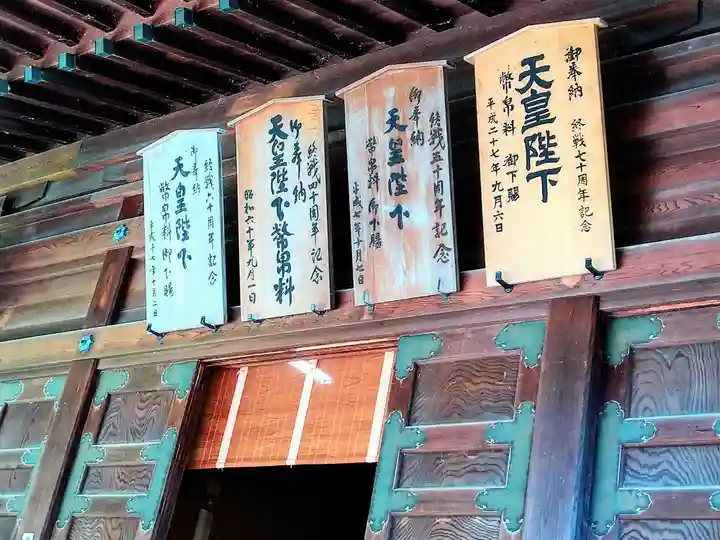 御奉納
終戦七十周年記念
天皇陛下
幣帛料 御下賜
平成二十七年九月六日
御奉納
終戦五十周年記念
天皇陛下
幣帛料 御下賜
平成七年十月七日
御奉納
終戦四十周年記念
天皇陛下幣帛料
昭和六十年九月一日
御奉納
終戦六十周年記念
天皇陛下
幣帛料 御下賜
年十月二日